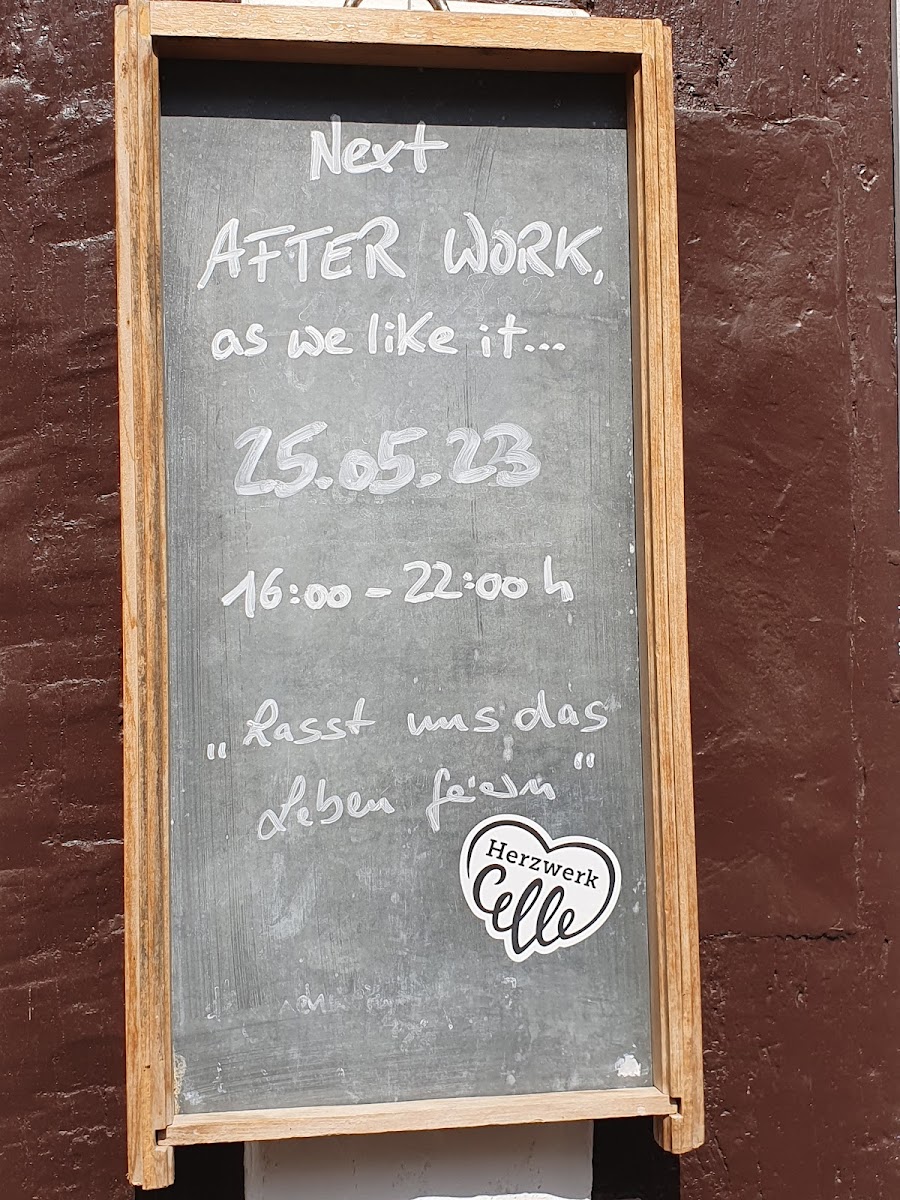 Next
AFTER WORK,
as we like it...
25.05.23
16:00 - 22:00 h
„Lasst uns das
Leben feiern"
Herzwerk
Celle